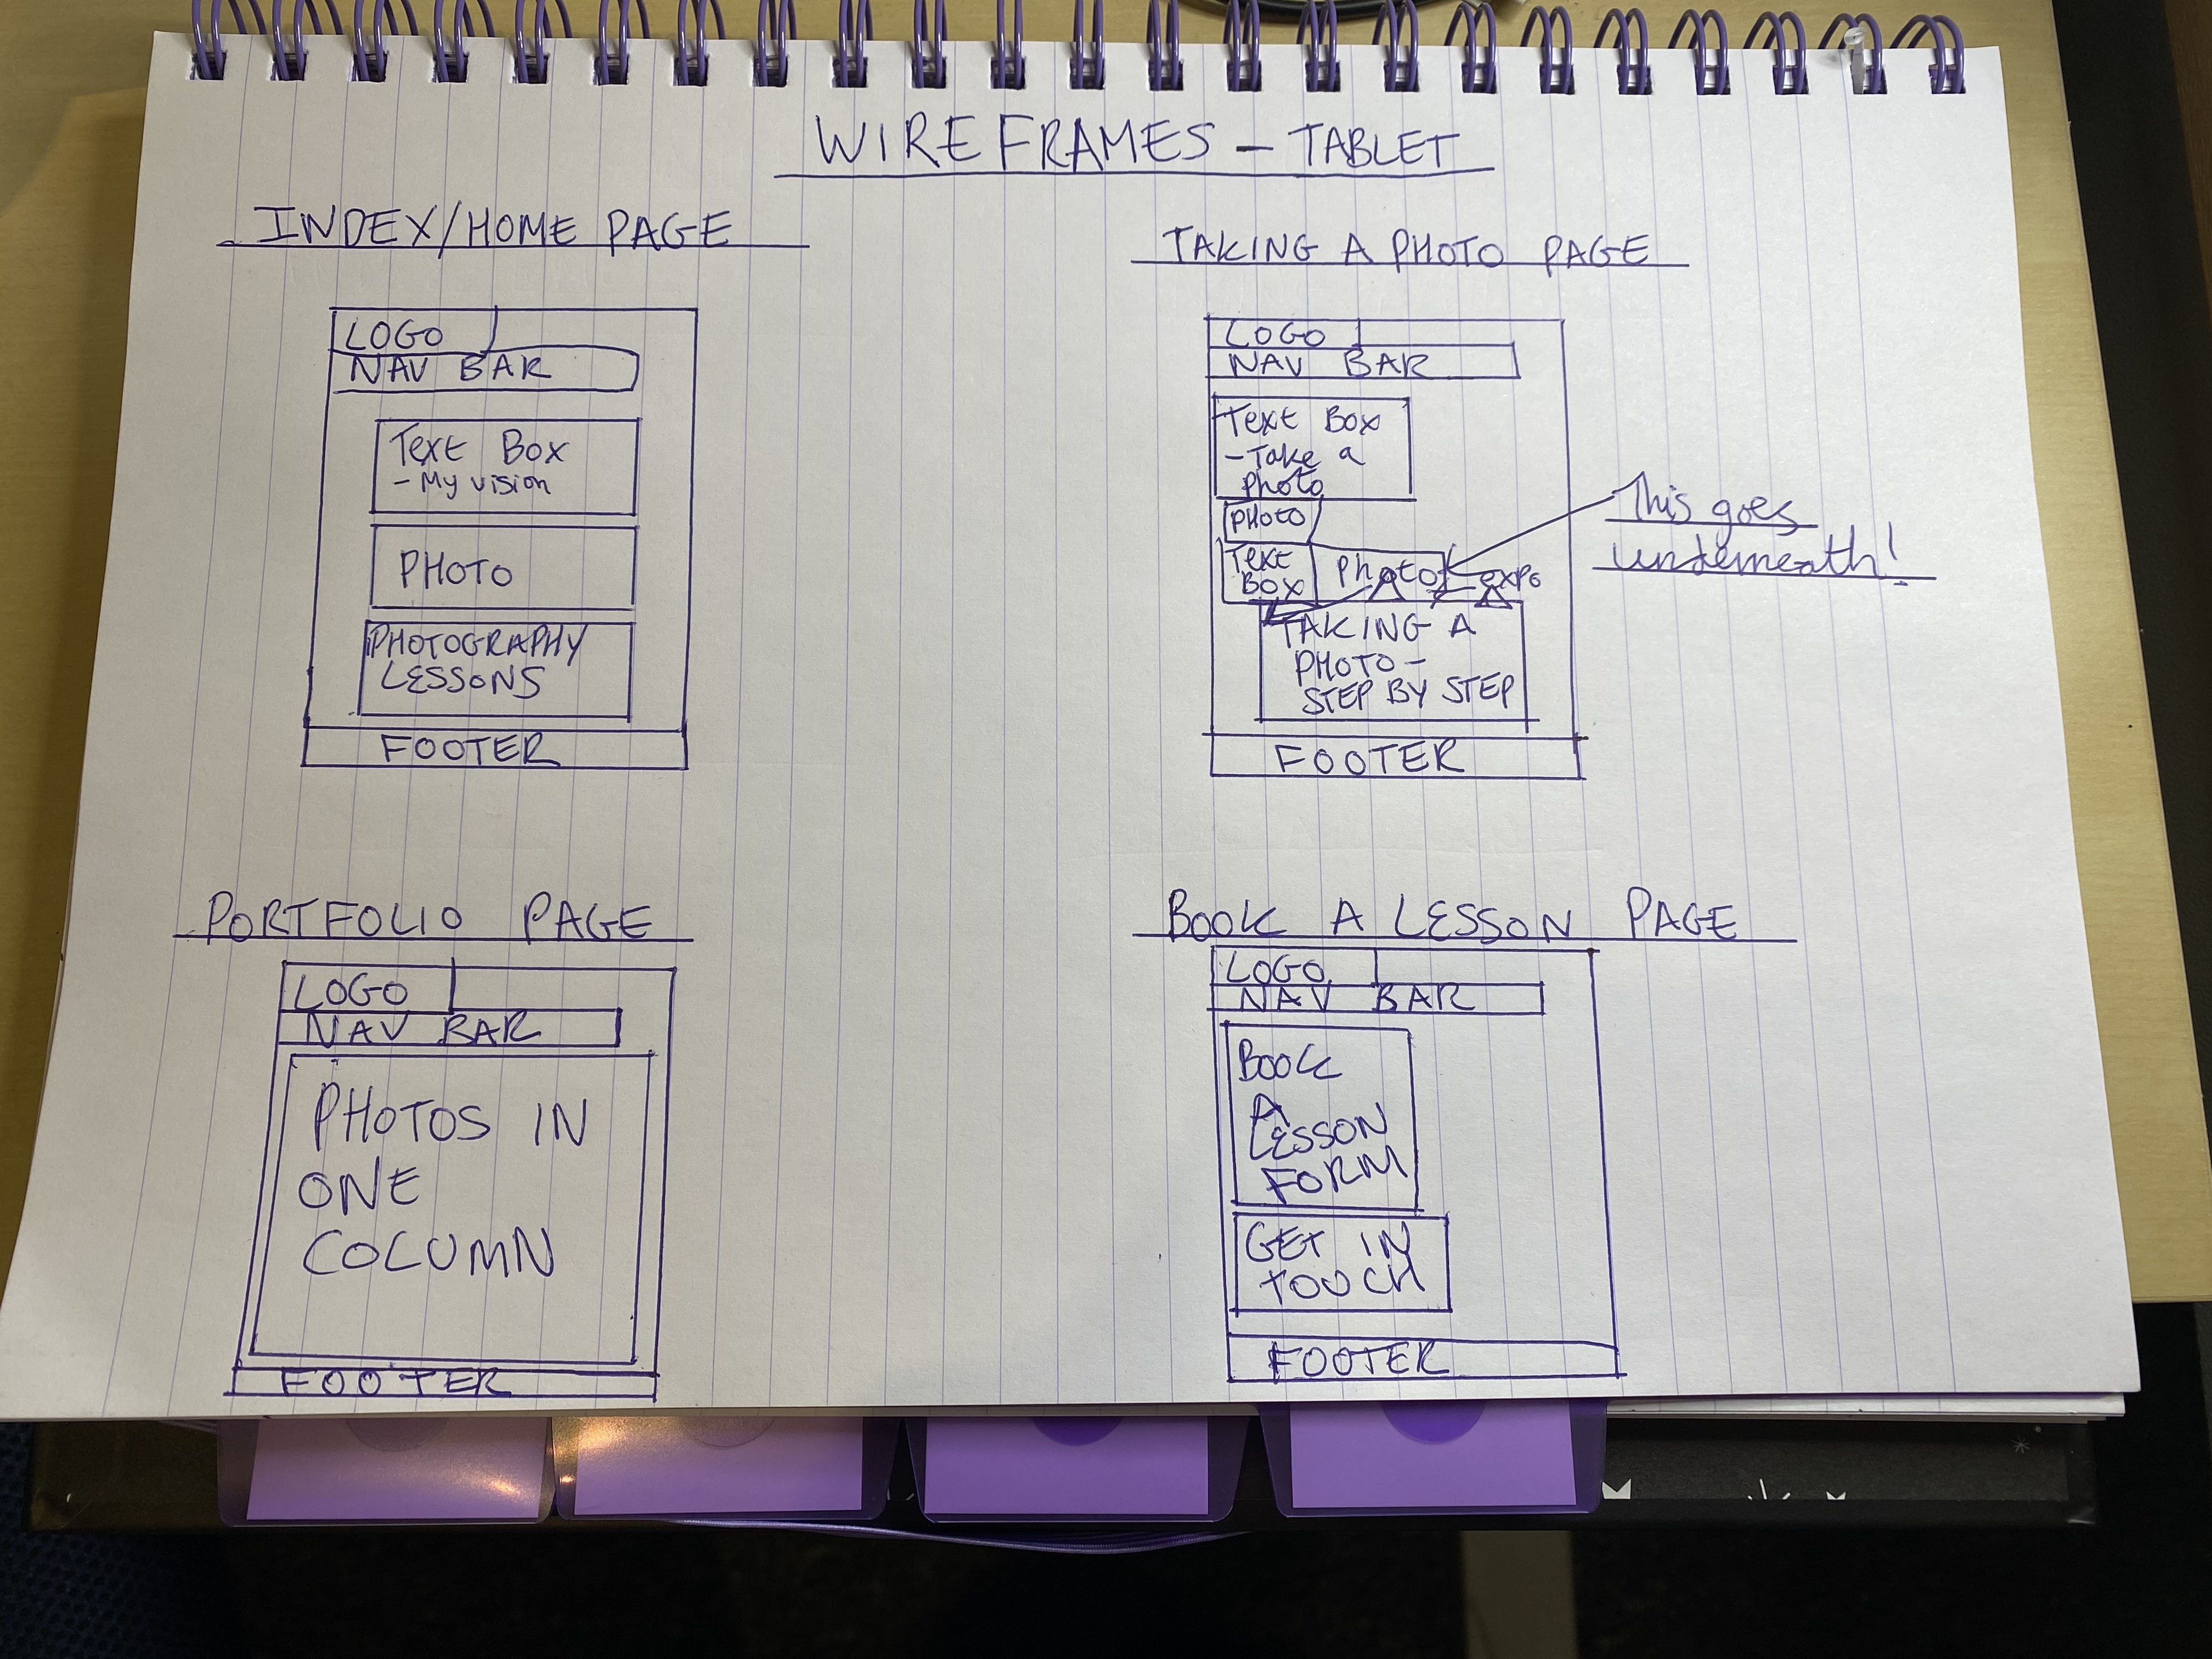 WIREFRAMES - TABLET
INDEX/HOME PAGE
LOGO
NAV BAR
Text Box
- My vision
PHOTO
PHOTOGRAPHY
LESSONS
FOOTER
TAKING A PHOTO PAGE
LOGO
NAV BAR
Text Box
- Take a
photo
PHOTO
Text
Box
Photo
This goes
underneath!
TAKING A
PHOTO -
STEP BY STEP
FOOTER
PORTFOLIO PAGE
LOGO
NAV BAR
PHOTOS IN
ONE
COLUMN
FOOTER
BOOK A LESSON PAGE
LOGO
NAV BAR
BOOK
A
LESSON
FORM
GET IN
TOUCH
FOOTER